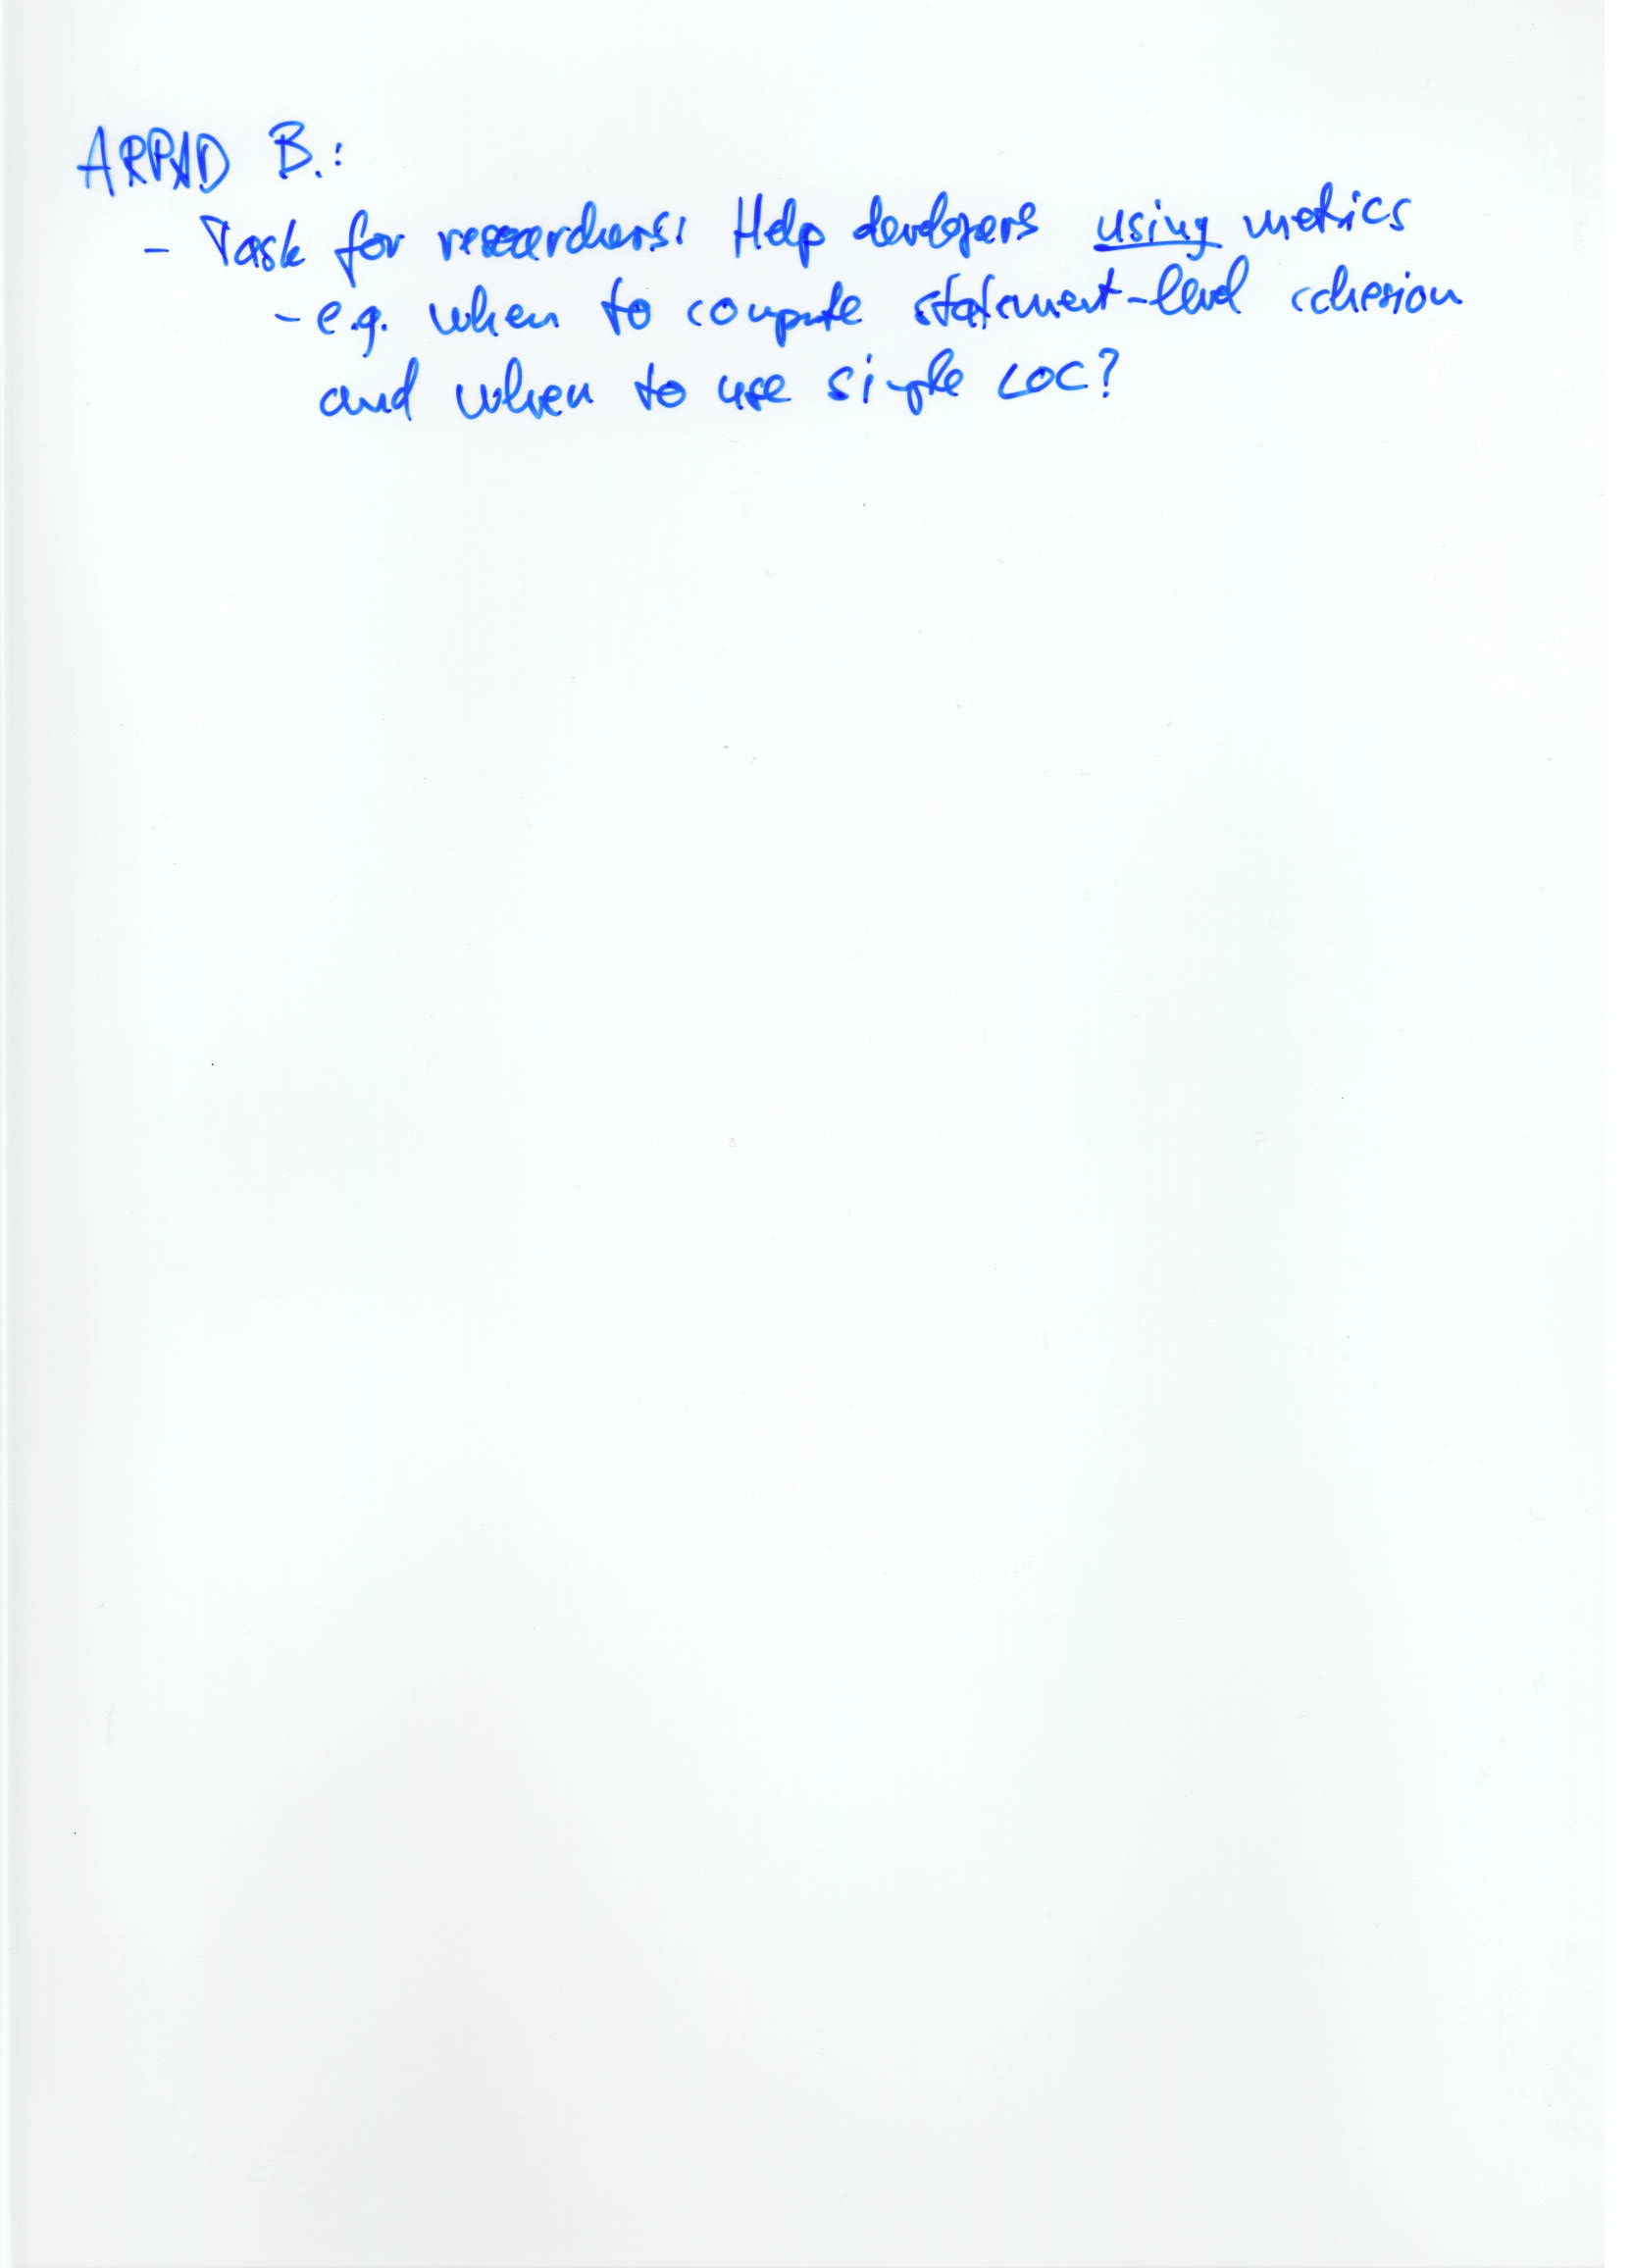 ARPAD B.:
- Task for researchers: Help developers using metrics
- e.g. when to compute statement-level cohesion
and when to use simple LOC?